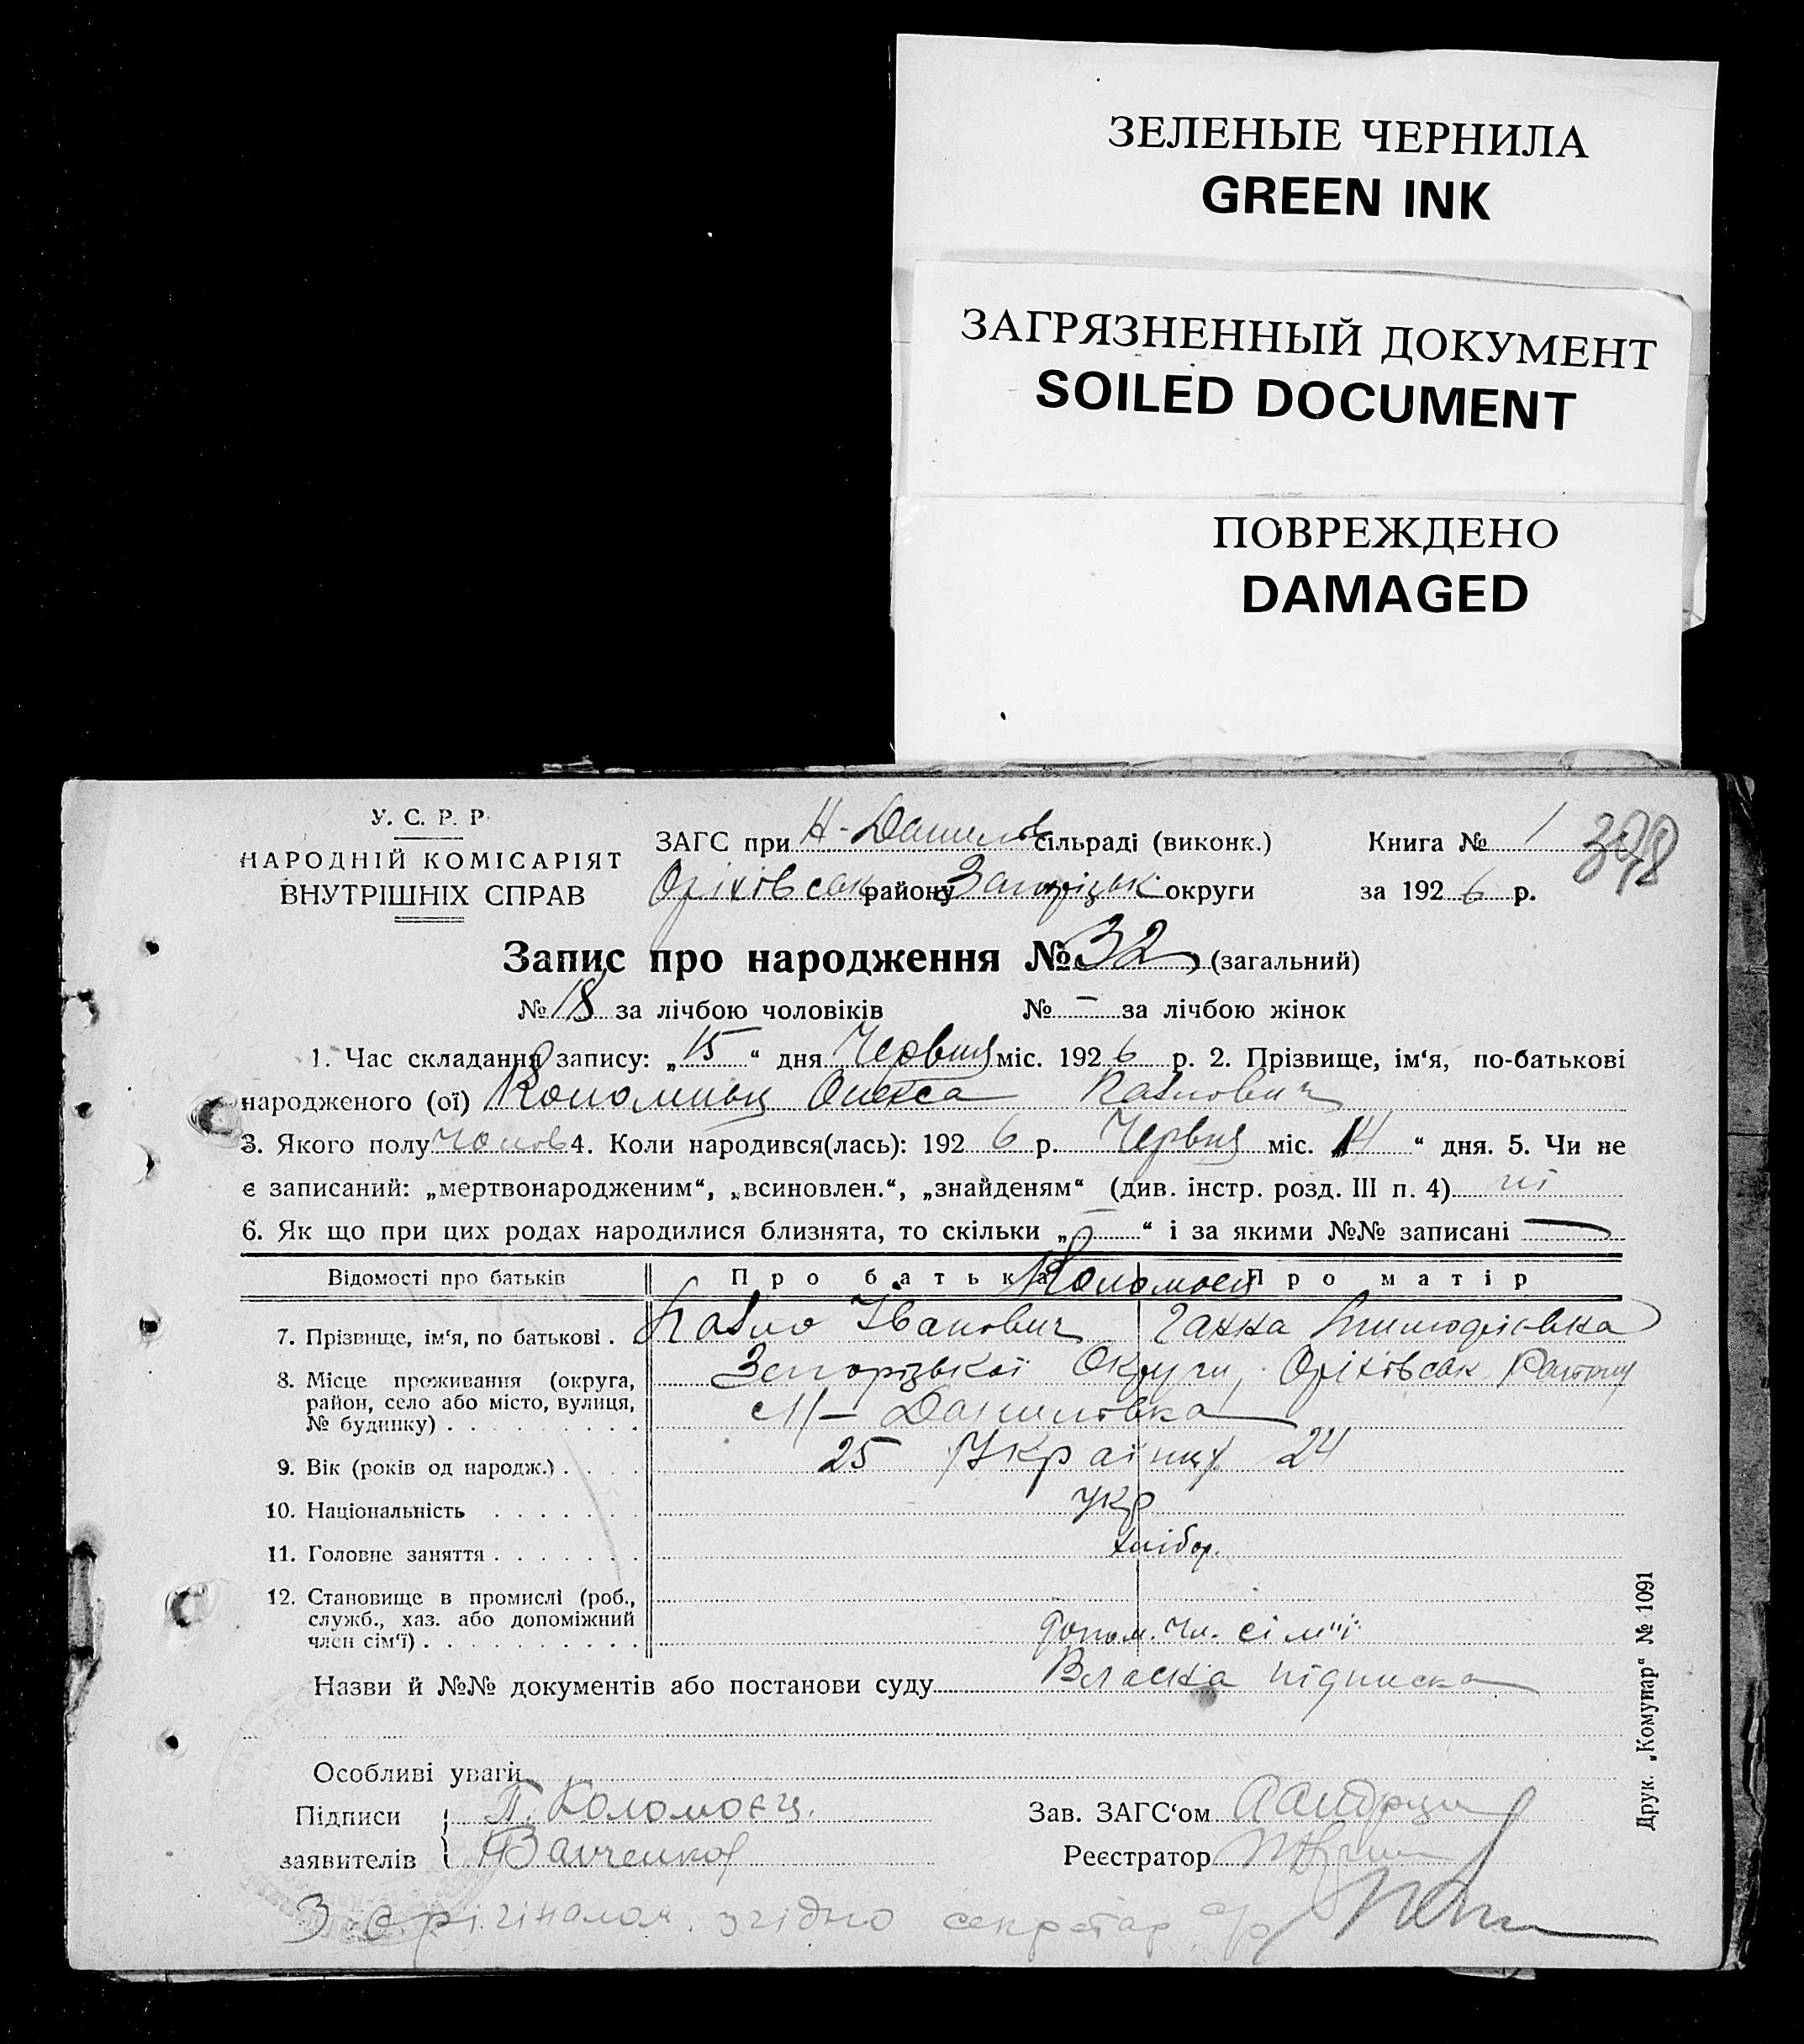 ЗЕЛЕНЫЕ ЧЕРНИЛА
GREEN INK
ЗАГРЯЗНЕННЫЙ ДОКУМЕНТ
SOILED DOCUMENT
ПОВРЕЖДЕНО
DAMAGED
У. С. Р. Р
НАРОДНІЙ КОМІСАРІЯТ
ВНУТРІШНІХ СПРАВ
ЗАГС при Н-Данилов сільраді (виконк.)
Оріхівськ району Запорізьк округи
Книга № 1 398
за 1926 р.
Запис про народження № 32 (загальний)
№ 18 за лічбою чоловіків № – за лічбою жінок
1. Час складання запису: „15“ дня Червня міс. 1926 р. 2. Прізвище, ім‘я, по-батькові
народженого (ої) Коломієць Олекса Павлович
3. Якого полу чолов 4. Коли народився(лась): 1926 р. Червня міс. „14“ дня. 5. Чи не
є записаний: „мертвонародженим“, „всиновлен.“, „знайденям“ (див. інстр. розд. III п. 4) ні
6. Як що при цих родах народилися близнята, то скільки „–“ і за якими №№ записані —
Відомості про батьків Про батька Про матір
Коломоєц
7. Прізвище, ім‘я, по батькові . Павло Іванович Ганна
8. Місце проживання (округа, Запорізької Округи, Оріхівськ Району
район, село або місто, вулиця,
№ будинку) . . . . . . . . . Н-Данилівка
9. Вік (років од народж.) . . . . 25 Українці 24
10. Національність . . . . . . . укр
11. Головне заняття . . . . . . . хлібор.
12. Становище в промислі (роб.,
служб., хаз. або допоміжний
член сім‘ї) . . . . . . . . . . допом. чл. сім"ї
Назви й №№ документів або постанови суду Власна підписка
Особливі уваги
Підписи П. Коломоєц.
заявителів
Зав. ЗАГС‘ом
Реєстратор
З орігіналом згідно секретар с/р
Друк. „Комунар“ № 1091